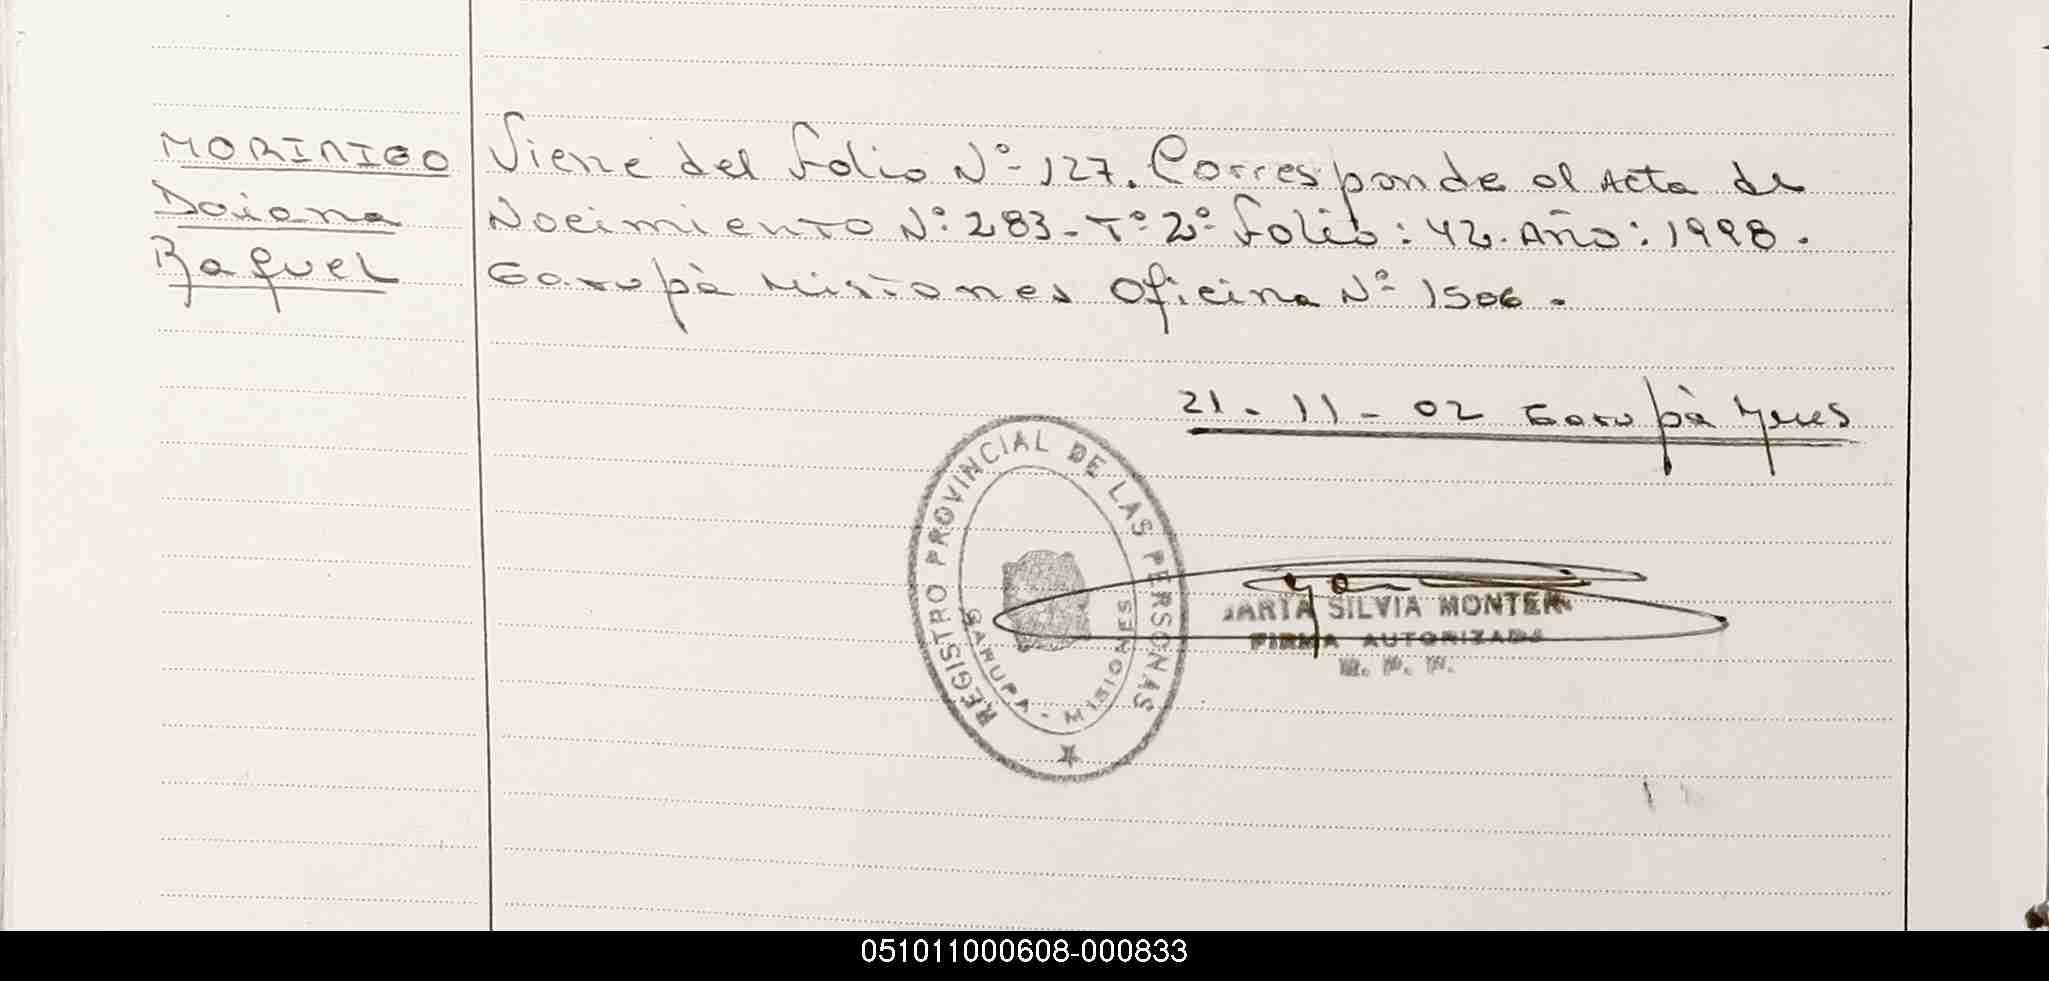 MORINIGO
Daiana
Raquel
Viene del folio Nº 127. Corresponde al Acta de
Nacimiento Nº 283 - Tº 2º folio: 42. Año: 1998.
Garupà Misiones Oficina Nº 1506.
21 - 11 - 02 Garupà Mnes
REGISTRO PROVINCIAL DE LAS PERSONAS
GARUPA - MISIONES
ARTA SILVIA MONTER
FIRMA AUTORIZADA
051011000608-000833